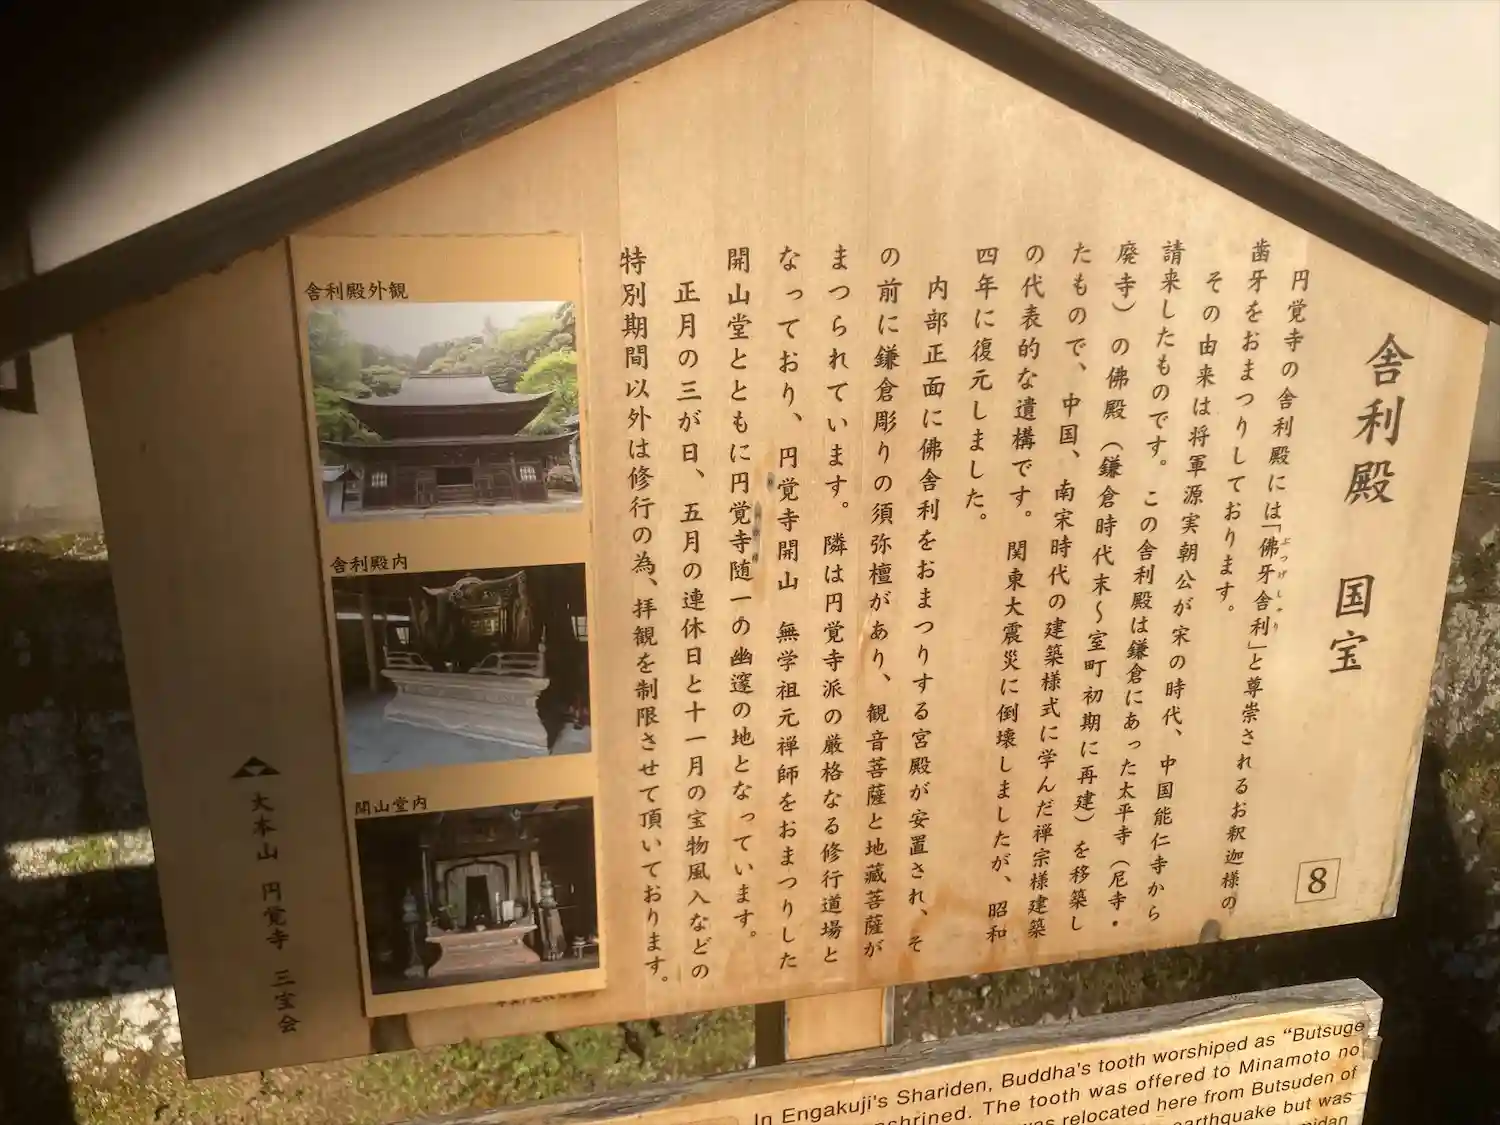 舎利殿 国宝
8
円覚寺の舎利殿には「佛牙舎利」と尊崇されるお釈迦様の
ぶつげしゃり
歯牙をおまつりしております。
その由来は将軍源実朝公が宋の時代、中国能仁寺から
請来したものです。この舎利殿は鎌倉にあった太平寺(尼寺・
廃寺)の佛殿(鎌倉時代末～室町初期に再建)を移築し
たもので、中国、南宋時代の建築様式に学んだ禅宗様建築
の代表的な遺構です。関東大震災に倒壊しましたが、昭和
四年に復元しました。
内部正面に佛舎利をおまつりする宮殿が安置され、そ
の前に鎌倉彫りの須弥壇があり、観音菩薩と地蔵菩薩が
まつられています。隣は円覚寺派の厳格なる修行道場と
なっており、円覚寺開山 無学祖元禅師をおまつりした
開山堂とともに円覚寺随一の幽邃の地となっています。
正月の三が日、五月の連休日と十一月の宝物風入などの
特別期間以外は修行の為、拝観を制限させて頂いております。
舎利殿外観
舎利殿内
開山堂内
大本山 円覚寺 三宝会
In Engakuji's Shariden, Buddha's tooth worshiped as "Butsuge
enshrined. The tooth was offered to Minamoto no
was relocated here from Butsuden of
earthquake but was
midan